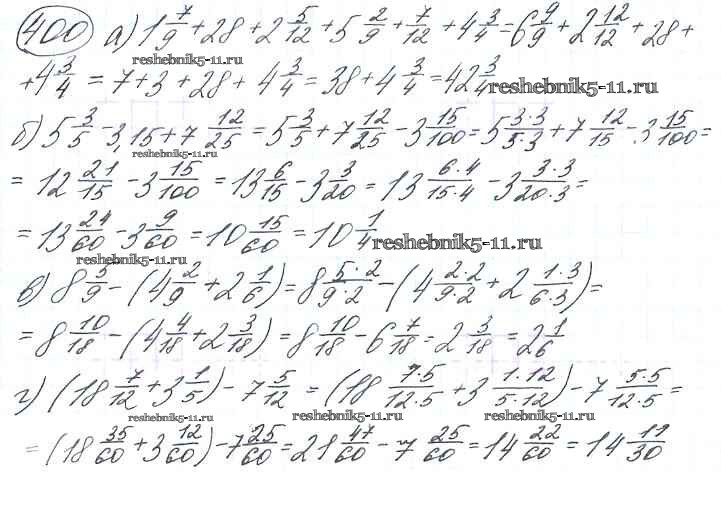 400 а) 1 7/9 + 28 + 2 5/12 + 5 2/9 + 7/12 + 4 3/4 = 6 9/9 + 2 12/12 + 28 +
reshebnik5-11.ru
+ 4 3/4 = 7 + 3 + 28 + 4 3/4 = 38 + 4 3/4 = 42 3/4
reshebnik5-11.ru
б) 5 3/5 - 3,15 + 7 12/25 = 5 3/5 + 7 12/25 - 3 15/100 = 5 3·3/5·3 + 7 12/15 - 3 15/100 =
reshebnik5-11.ru
= 12 21/15 - 3 15/100 = 13 6/15 - 3 3/20 = 13 6·4/15·4 - 3 3·3/20·3 =
= 13 24/60 - 3 9/60 = 10 15/60 = 10 1/4
reshebnik5-11.ru
reshebnik5-11.ru
в) 8 5/9 - (4 2/9 + 2 1/6) = 8 5·2/9·2 - (4 2·2/9·2 + 2 1·3/6·3) =
= 8 10/18 - (4 4/18 + 2 3/18) = 8 10/18 - 6 7/18 = 2 3/18 = 2 1/6
г) (18 7/12 + 3 1/5) - 7 5/12 = (18 7·5/12·5 + 3 1·12/5·12) - 7 5·5/12·5 =
reshebnik5-11.ru reshebnik5-11.ru reshebnik5-11.ru
= (18 35/60 + 3 12/60) - 7 25/60 = 21 47/60 - 7 25/60 = 14 22/60 = 14 11/30